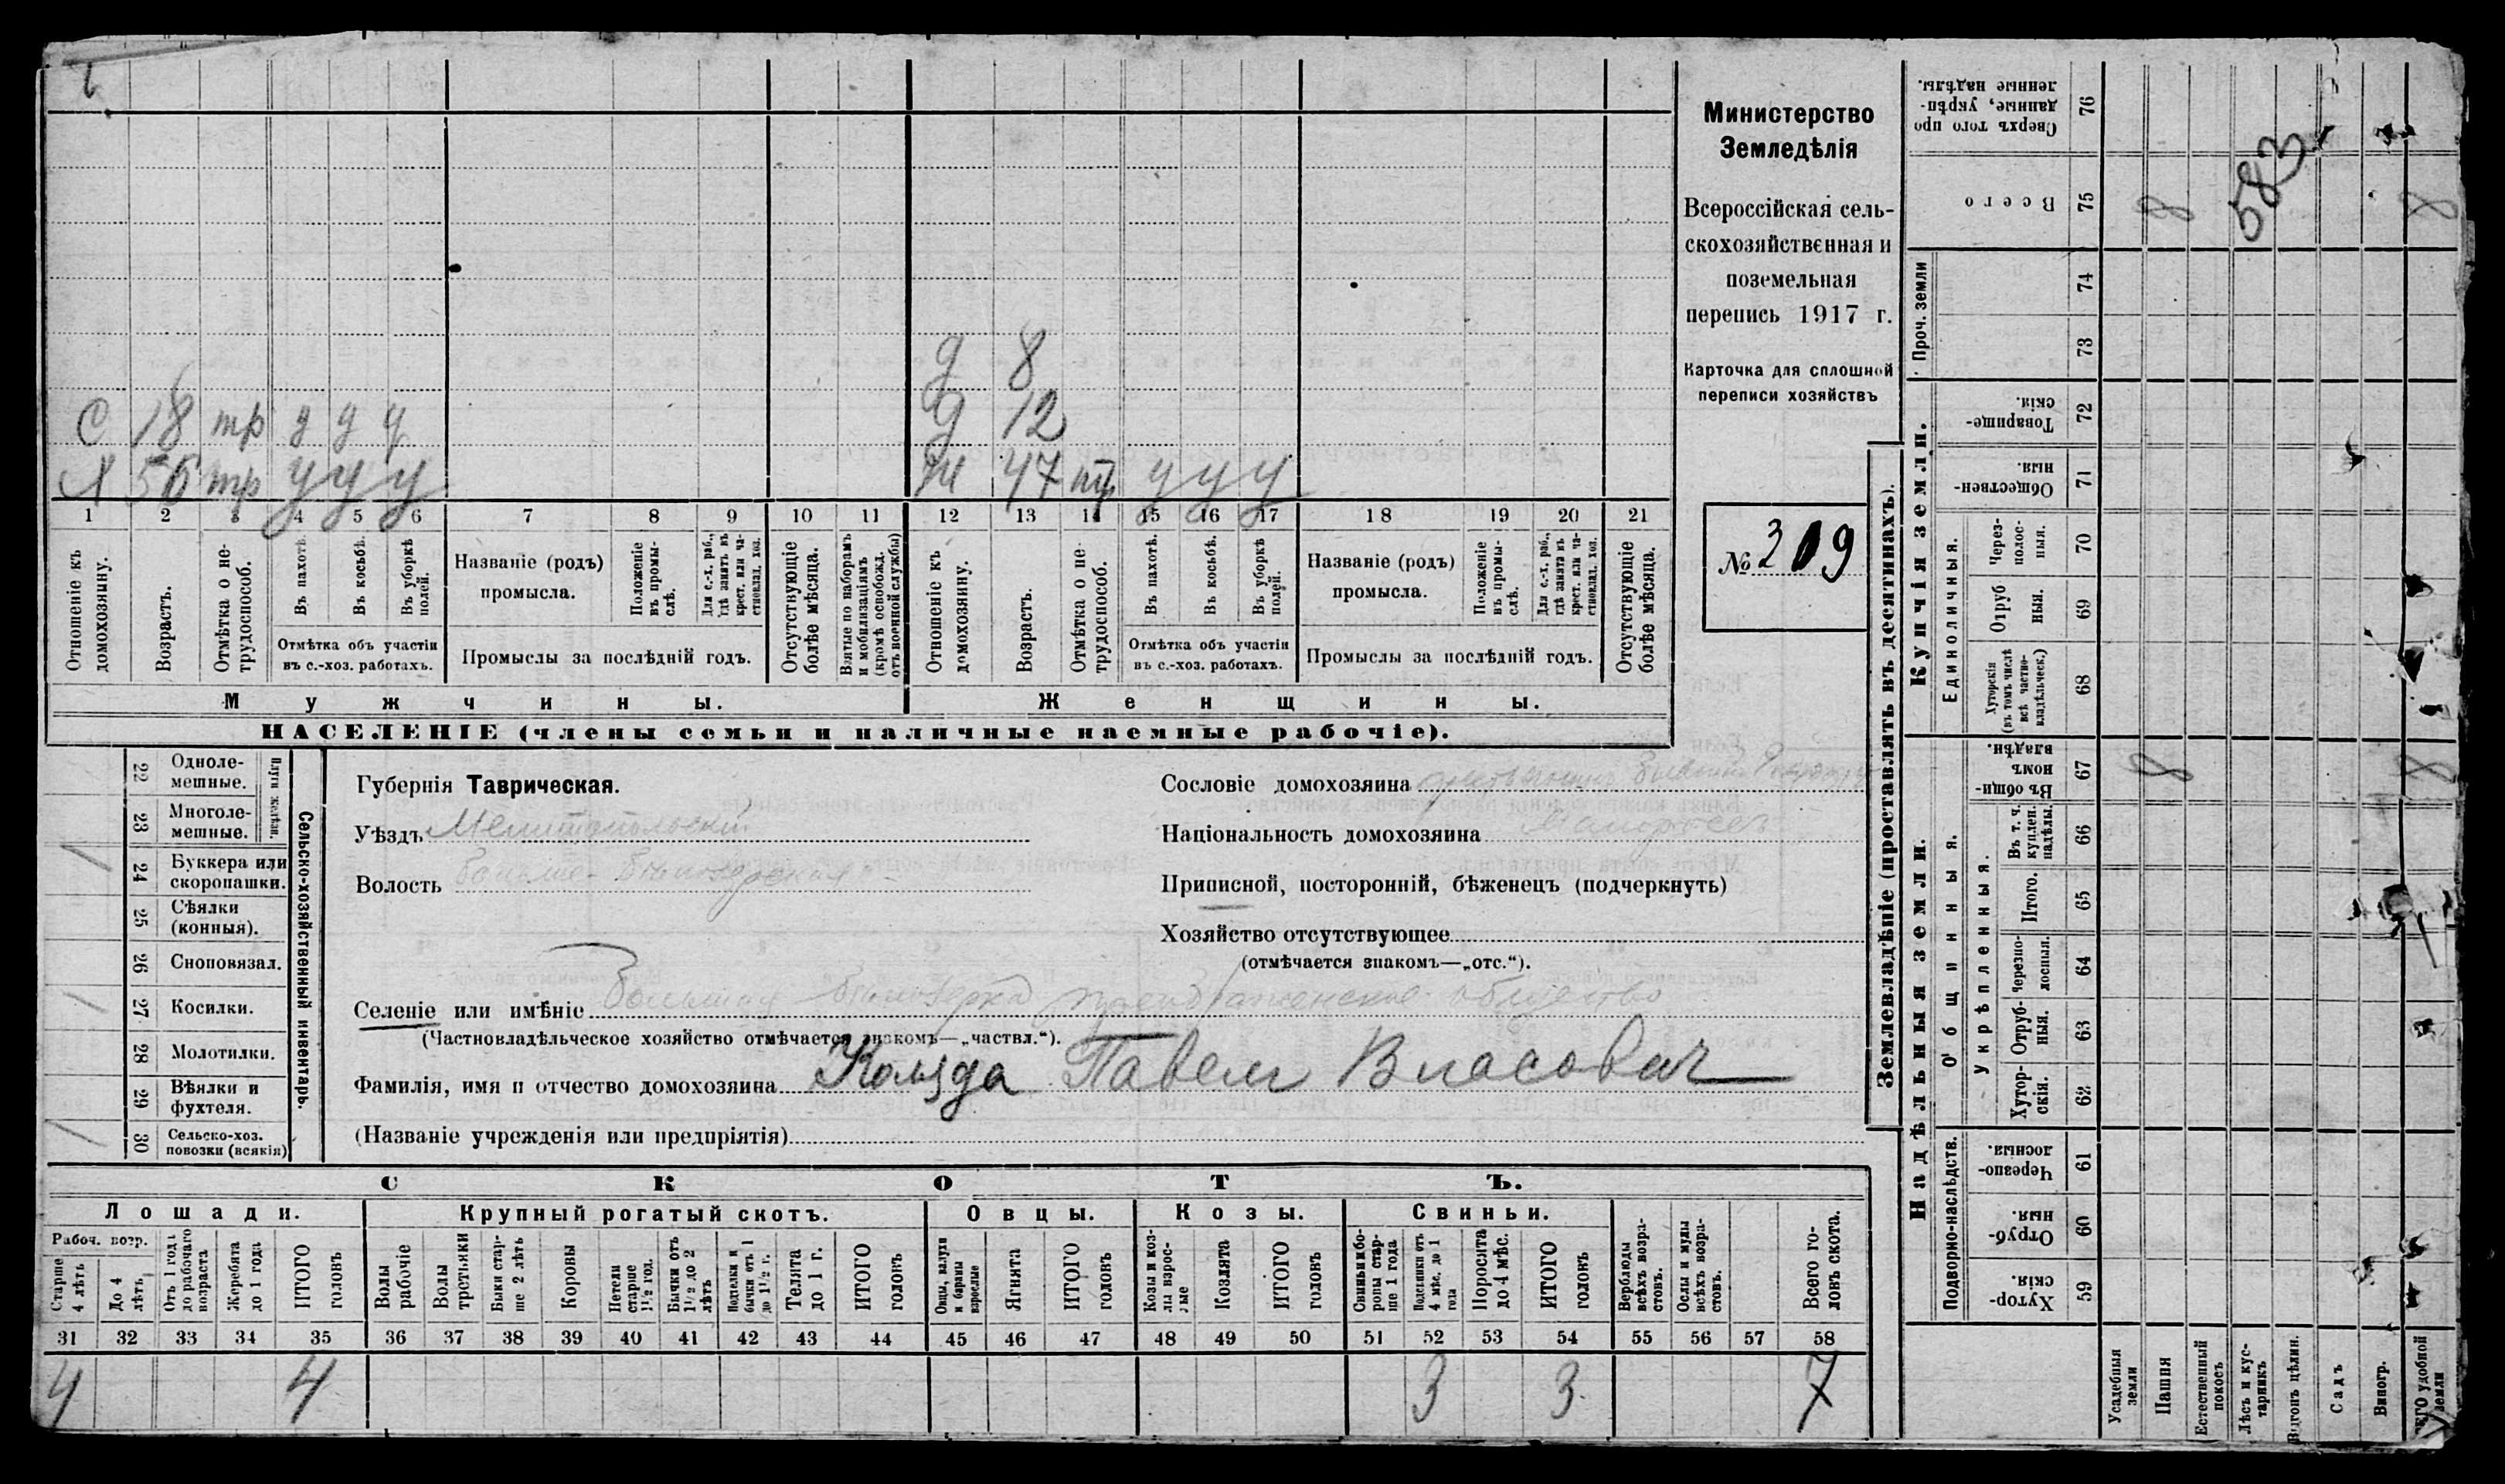 Министерство
Земледѣлія
Всероссійская сель-
скохозяйственная и
поземельная
перепись 1917 г.
Карточка для сплошной
переписи хозяйствъ
№ 309
583
д 8
С 18 тр у у у д 12
Х 56 тр у у у ж 47 тр у у у
1 2 3 4 5 6 7 8 9 10 11 12 13 14 15 16 17 18 19 20 21
Отношеніе къ домохозяину.
Возрастъ.
Отмѣтка о не-трудоспособ.
Въ пахотѣ.
Въ косьбѣ.
Въ уборкѣ полей.
Отмѣтка объ участіи
въ с.-хоз. работахъ.
Названіе (родъ)
промысла.
Положеніе въ промы-слѣ.
Для с.-х. раб., гдѣ занятъ въ крест. или ча-стновлад. хоз.
Промыслы за послѣдній годъ.
Отсутствующіе болѣе мѣсяца.
Взятые по наборамъ и мобилизаціямъ (кромѣ освобожд. отъ военной службы)
Отношеніе къ домохозяину.
Возрастъ.
Отмѣтка о не-трудоспособ.
Въ пахотѣ.
Въ косьбѣ.
Въ уборкѣ полей.
Отмѣтка объ участіи
въ с.-хоз. работахъ.
Названіе (родъ)
промысла.
Положеніе въ промы-слѣ.
Для с.-х. раб., гдѣ занята въ крест. или ча-стновлад. хоз.
Промыслы за послѣдній годъ.
Отсутствующіе болѣе мѣсяца.
Мужчины.
Женщины.
НАСЕЛЕНІЕ (члены семьи и наличные наемные рабочіе).
Сельско-хозяйственный инвентарь.
Плуги желѣзн.
22 Одноле-мешные.
23 Многоле-мешные.
1 24 Буккера или скоропашки.
25 Сѣялки (конныя).
26 Сноповязал.
1 27 Косилки.
28 Молотилки.
29 Вѣялки и фухтеля.
1 30 Сельско-хоз. повозки (всякія)
Губернія Таврическая.
Уѣздъ Мелитопольскій
Волость Больше-Бѣлозерская
Сословіе домохозяина
Національность домохозяина Малороссъ
Приписной, посторонній, бѣженецъ (подчеркнуть)
Хозяйство отсутствующее
(отмѣчается знакомъ—„отс.“).
Селеніе или имѣніе Большая Бѣлозерка преображенское общество
(Частновладѣльческое хозяйство отмѣчается знакомъ—„частвл.“).
Фамилія, имя и отчество домохозяина Коляда Павелъ Власовичъ
(Названіе учрежденія или предпріятія)
СКОТЪ.
Лошади.
Крупный рогатый скотъ.
Овцы.
Козы.
Свиньи.
Рабоч. возр.
Старше 4 лѣтъ
До 4 лѣтъ
Отъ 1 года до рабочаго возраста
Жеребята до 1 года
ИТОГО головъ
Волы рабочіе
Волы третьяки
Быки стар-ше 2 лѣтъ
Коровы
Петели старше 1½ год.
Бычки отъ 1½ до 2 лѣтъ
Подтелки и бычки отъ 1 до 1½ г.
Телята до 1 г.
ИТОГО головъ
Овцы, валухи и бараны взрослые
Ягнята
ИТОГО головъ
Козы и коз-лы взрос-лые
Козлята
ИТОГО головъ
Свиньи и бо-ровы стар-ше 1 года
Подсвинки отъ 4 мѣс. до 1 года
Поросята до 4 мѣс.
ИТОГО головъ
Верблюды всѣхъ возра-стовъ.
Ослы и мулы всѣхъ возра-стовъ.
Всего го-ловъ скота.
31 32 33 34 35 36 37 38 39 40 41 42 43 44 45 46 47 48 49 50 51 52 53 54 55 56 57 58
4 4 3 3 7
Землевладѣніе (проставлять въ десятинахъ).
Надѣльныя земли.
Купчія земли.
Проч. земли
Подворно-наслѣдств.
Общинныя.
Укрѣпленныя.
Единоличныя.
Сверхъ того про-данные, укрѣп-ленные надѣлы. 76
Всего 75 8 8
74
73
Товарище-скія. 72
Обществен-ныя. 71
Через-полос-ныя. 70
Отруб-ныя. 69
Хуторскія (въ томъ числѣ всѣ частно-владѣльческ.) 68
Въ общин-номъ владѣн. 67 8 8
Въ т. ч. куплен. надѣлы. 66
Итого. 65
Черезпо-лосныя. 64
Отруб-ныя. 63
Хутор-скія. 62
Черезпо-лосныя. 61
Отруб-ныя. 60
Хутор-скія. 59
Усадебныя земли
Пашня
Естественный покосъ
Лѣсъ и кус-тарникъ
Выгонъ цѣлин.
Садъ
Виногр.
удобной земли